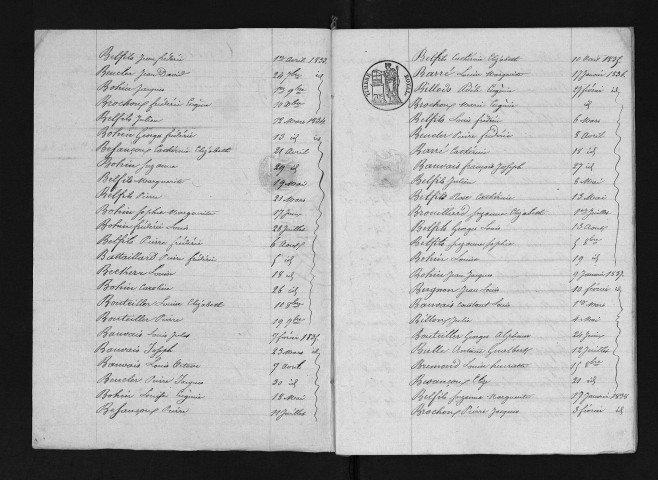 Belfils Jean frédéric 12 Avril 1833.
Beucler Jean David 24 7bre id
Bohin Jacques 12 9bre
Brochon frédéric Eugène 11 Xbre
Belfils Julien 12 Mars 1834
Bohin George frédéric 13 id id
Besançon Cathérine Elizabeth 21 Avril
Bohin Suzanne 29 id
Belfils Marguerite 19 Mai
Belfils Pierre 21 Mars
Bohin Sophie Marguerite 17 Juin
Bohin frédéric Louis 28 Juillet
Belfils Pierre frédéric 6 Aout
Bataillard Pierre frédéric 5 id
Louise 18 id
Bohin Caroline 26 id
Bouteiller Louise Elizabeth 11 8bre
Bouteiller Pierre 19 9bre
Bauvais Louis Jules 7 févier 1835
Bauvais Joseph 23 Mars id
Bauvais Louis 7 Aout
Beucler Pierre Jacques 30 id
Bohin Eugénie 18 Mai
Besançon Pierre 11 Juillet
Belfils Cathérine Elizabeth 11 Aout 1835.
Barré Louise Marguerite 17 Janvier 1836.
Eugénie 27 février id
Brochon Marie Eugénie id
Belfils Louis frédéric 6 Mars
Beucler Pierre frédéric 8 Avril
Barré Cathérine 16 id
Bauvais françois Joseph 27 id
Belfils Julien 8 Mai
Belfils Rose Cathérine 13 Mai
Brouillard Suzanne Elizabeth 1er Juillet
Belfils George Louis 13 Aout
Belfils Suzanne Sophie 5 8bre
Bohin Louise 19 id
Bohin Jean Jacques 9 Janvier 1837.
Jean Louis 10 février id
Bauvais Constant Louis 1er Mars
Billon Julie 4 Mai
Bouteiller George Alphonse 24 Juin
Antoine 12 Juillet
Louise 15 8bre
Besançon 20 id
Belfils Suzanne Marguerite 17 Janvier 1838
Brochon Pierre Jacques 3 février id